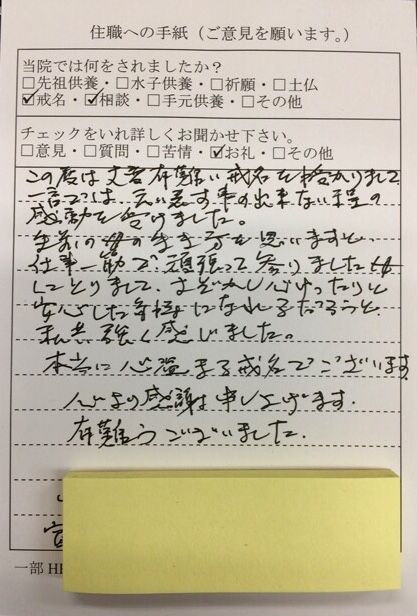 住職への手紙（ご意見を願います。）
当院では何をされましたか？
□先祖供養・□水子供養・□祈願・□土仏
☑戒名・☑相談・□手元供養・□その他
チェックをいれ詳しくお聞かせ下さい。
□意見・□質問・□苦情・☑お礼・□その他
この度は大変有難い戒名を授かりまして
一言では、言い表す事の出来ない程の
感動を受けました。
生前の母の生き方を思いますと、
仕事一筋で頑張って参りました母
にとりまして、さぞかし心ゆったりと
安心した気持になれるだろうと、
私共強く感じました。
本当に心温まる戒名でございます
心より感謝申し上げます.
有難うございました.
一部